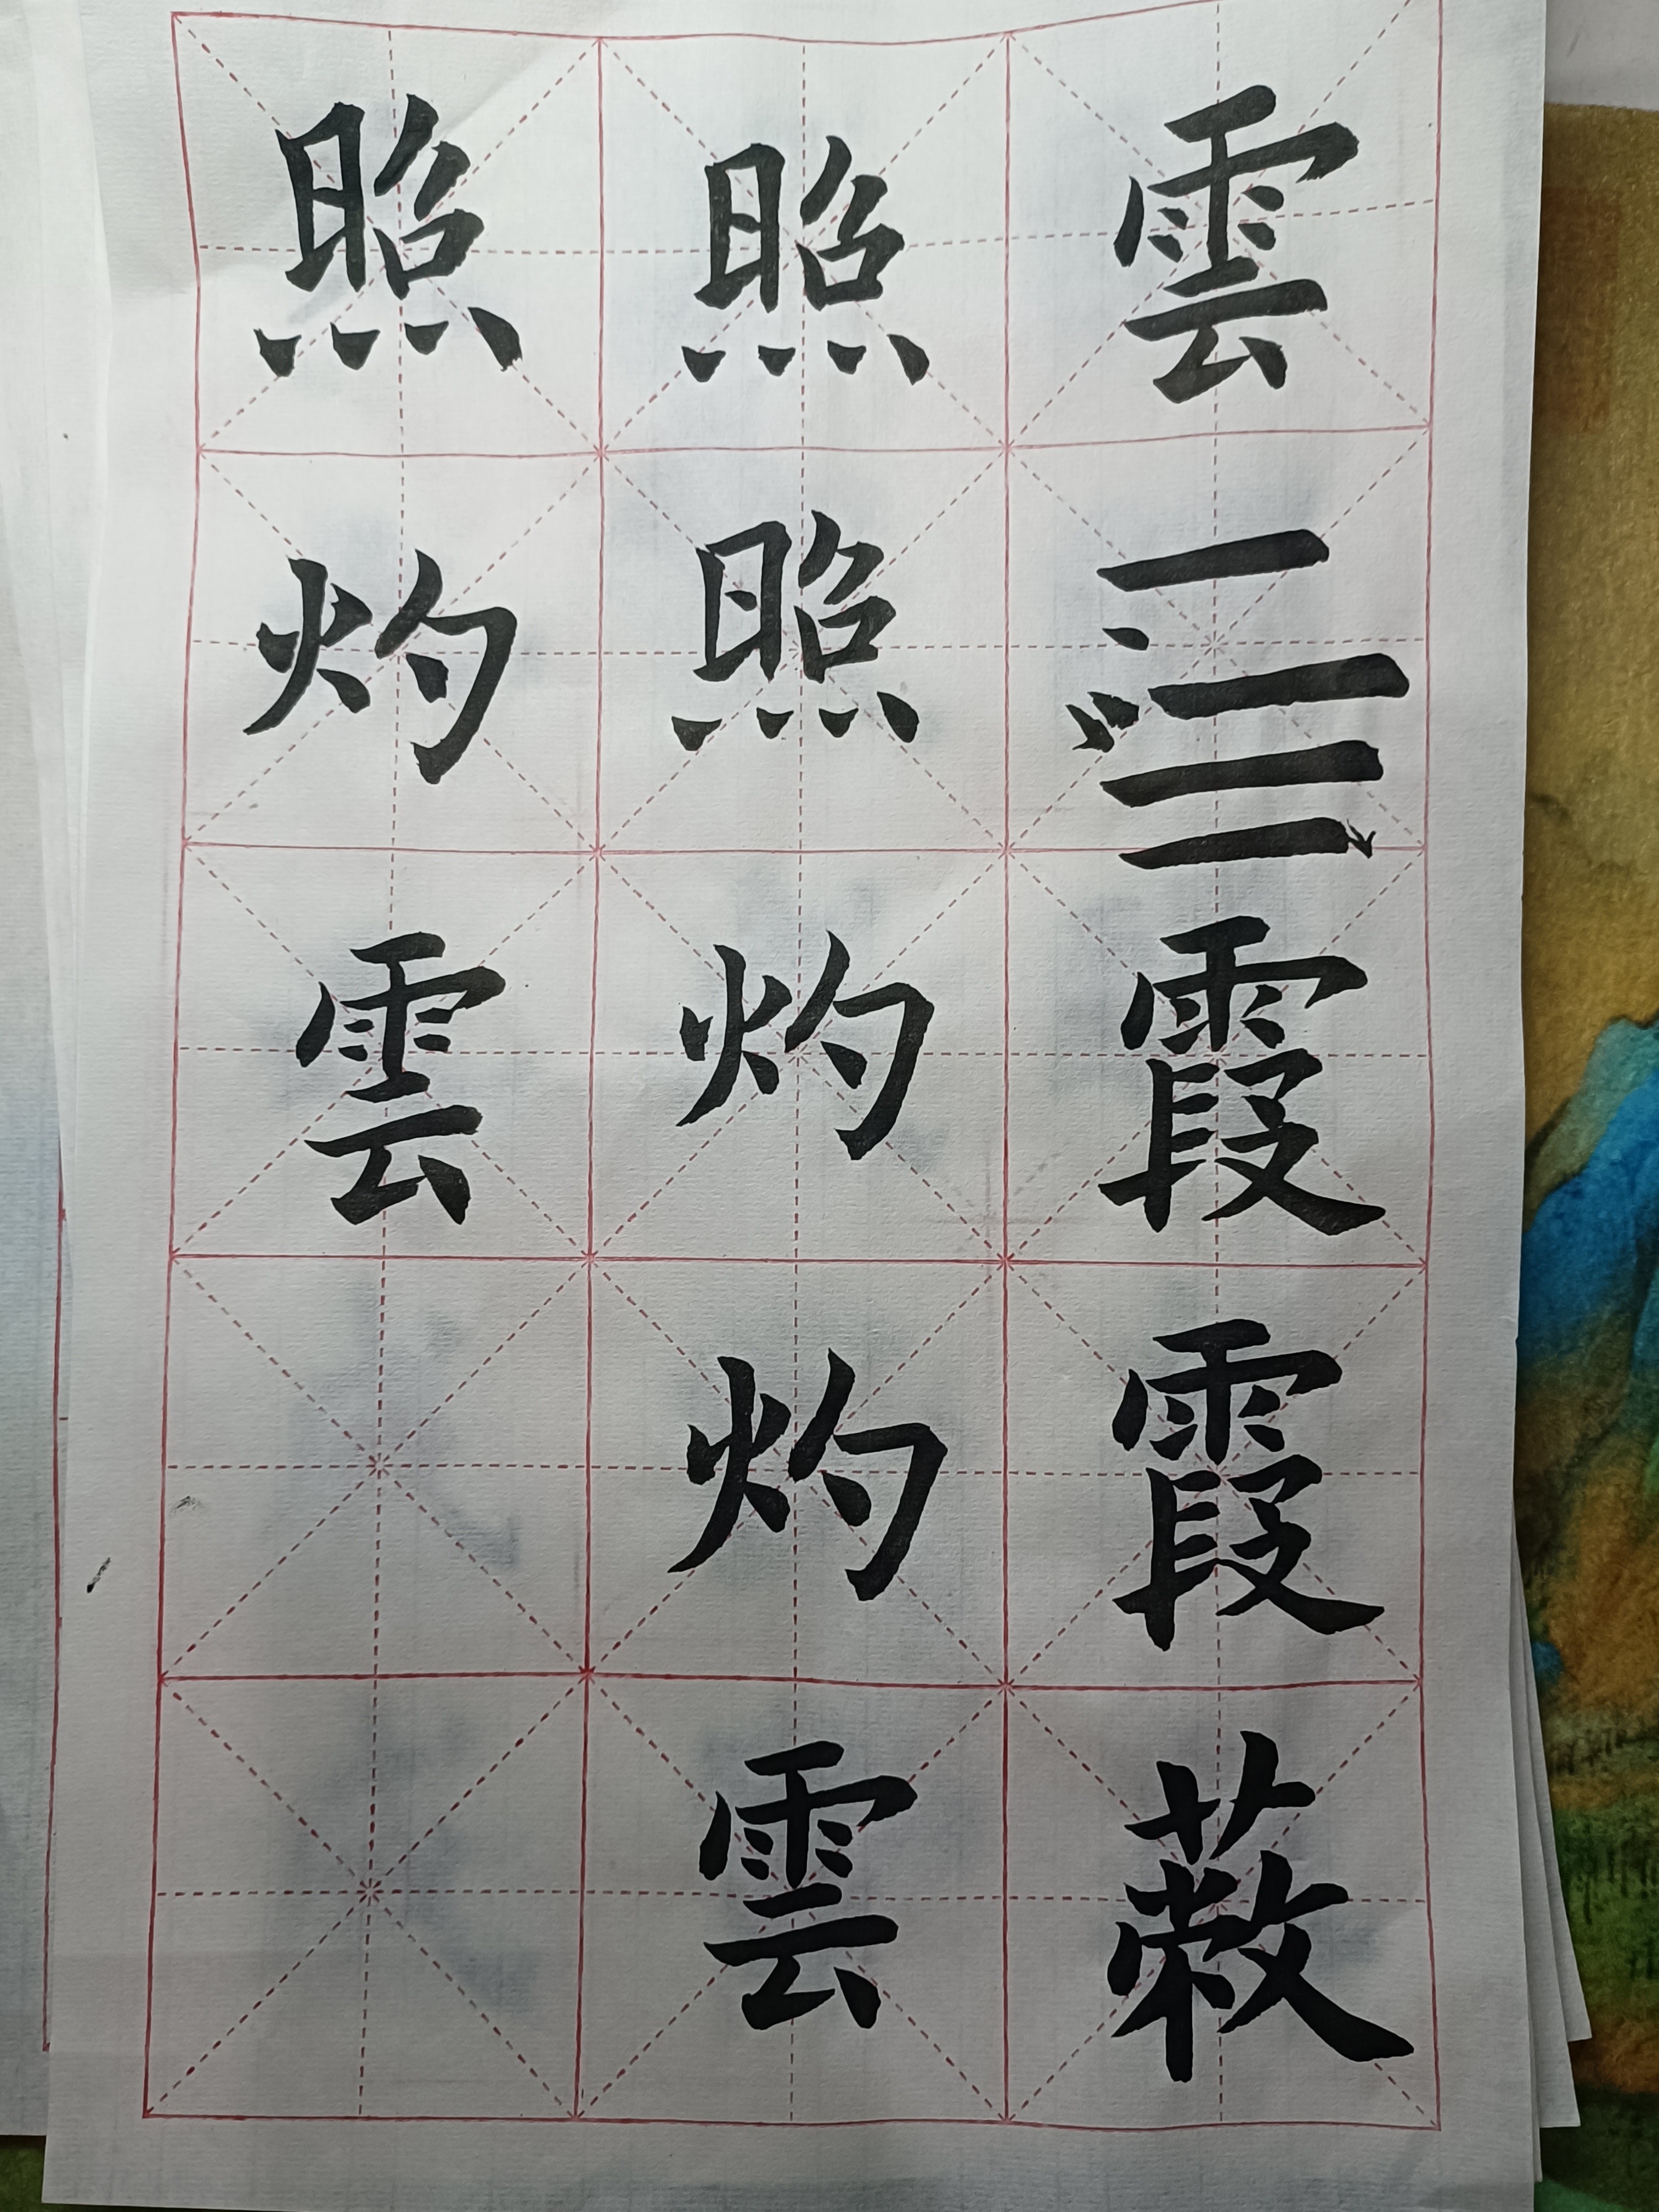 照灼雲
照照灼灼雲
雲霞霞蔽